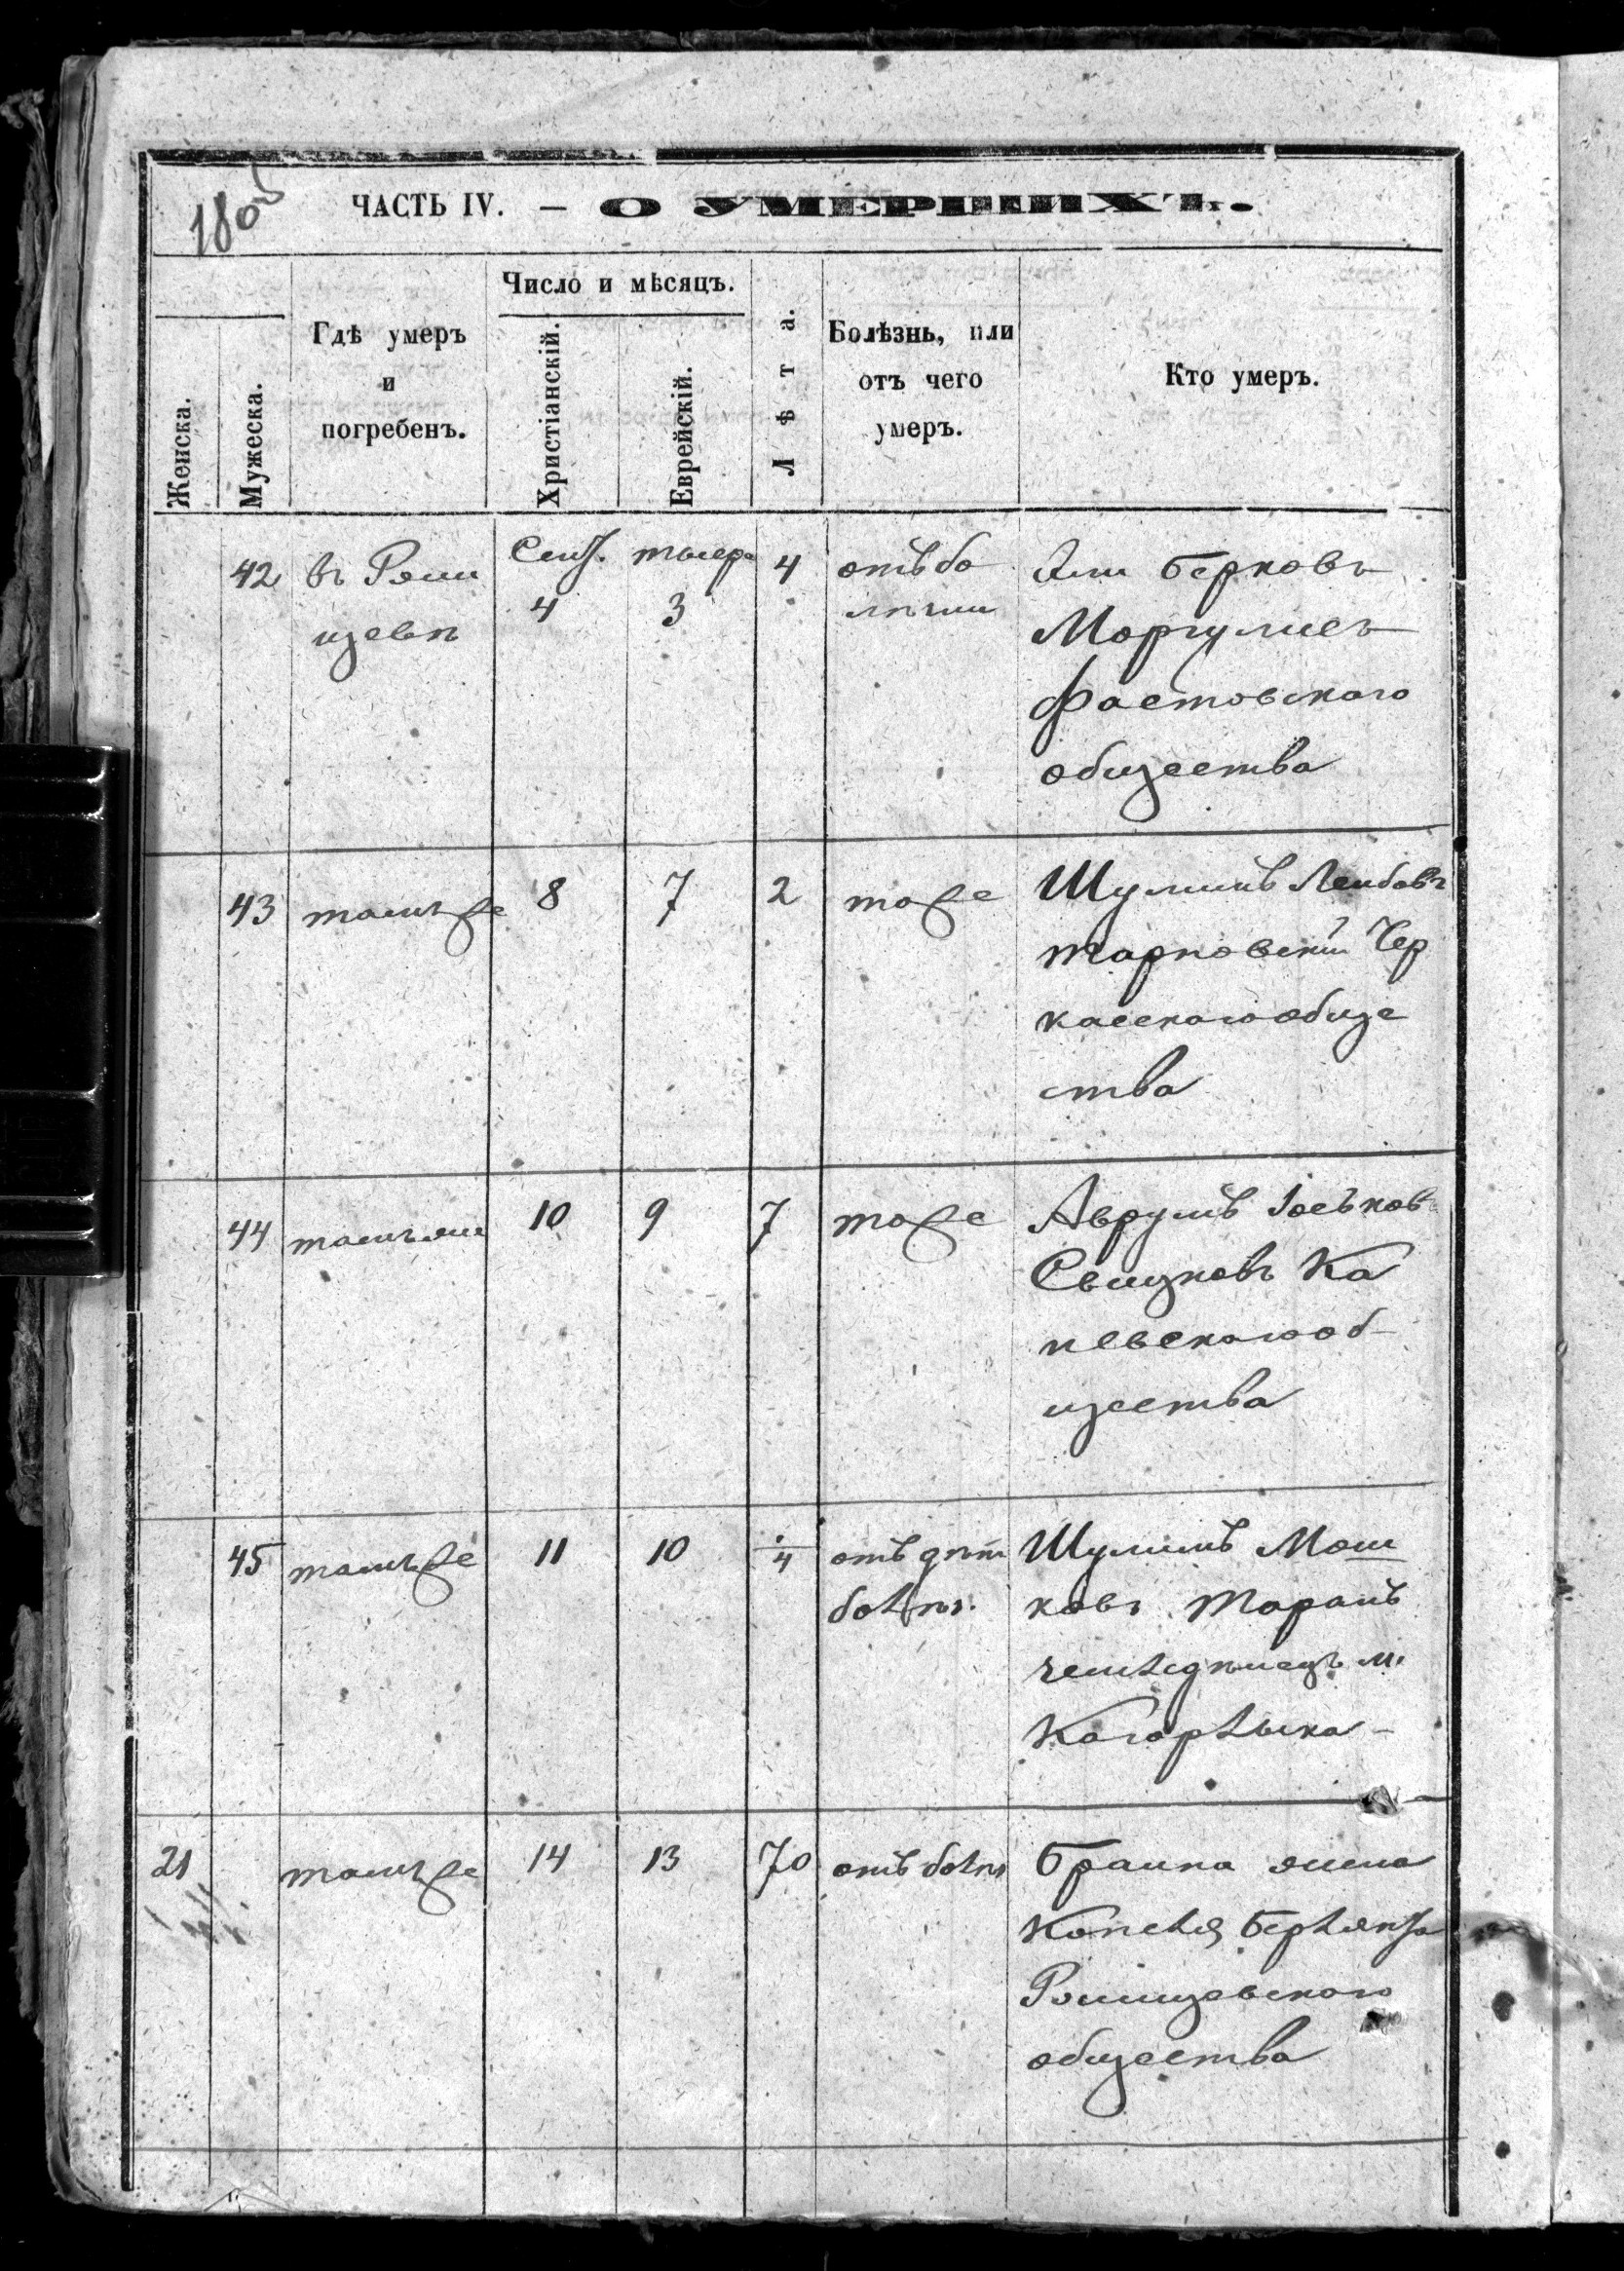 180
ЧАСТЬ IV. — О УМЕРШИХЪ.
Женска.
Мужеска.
Гдѣ умеръ
и
погребенъ.
Число и мѣсяцъ.
Христіанскій.
Еврейскій.
Лѣта.
Болѣзнь, или
отъ чего
умеръ.
Кто умеръ.
42
въ Ржи
щевѣ
Сент.
4
тишр
3
4
отъ бо
лѣзни
Берковъ
Моргулисъ
Фастовского
общества
43
тамъже
8
7
2
тоже
Шулимъ Лейбовъ
Тарновскій Чер
касского обще
ства
44
тамъже
10
9
7
тоже
Аврумъ Іоськовъ
Ка
невского об
щества
45
тамъже
11
10
1/4
отъ дѣт
болѣз.
Шулимъ Мош
ковъ Таранъ
м.
Кагарлыка
21
тамъже
14
13
70
отъ болѣз
Браина жена
Копеля
Ржищевского
общества